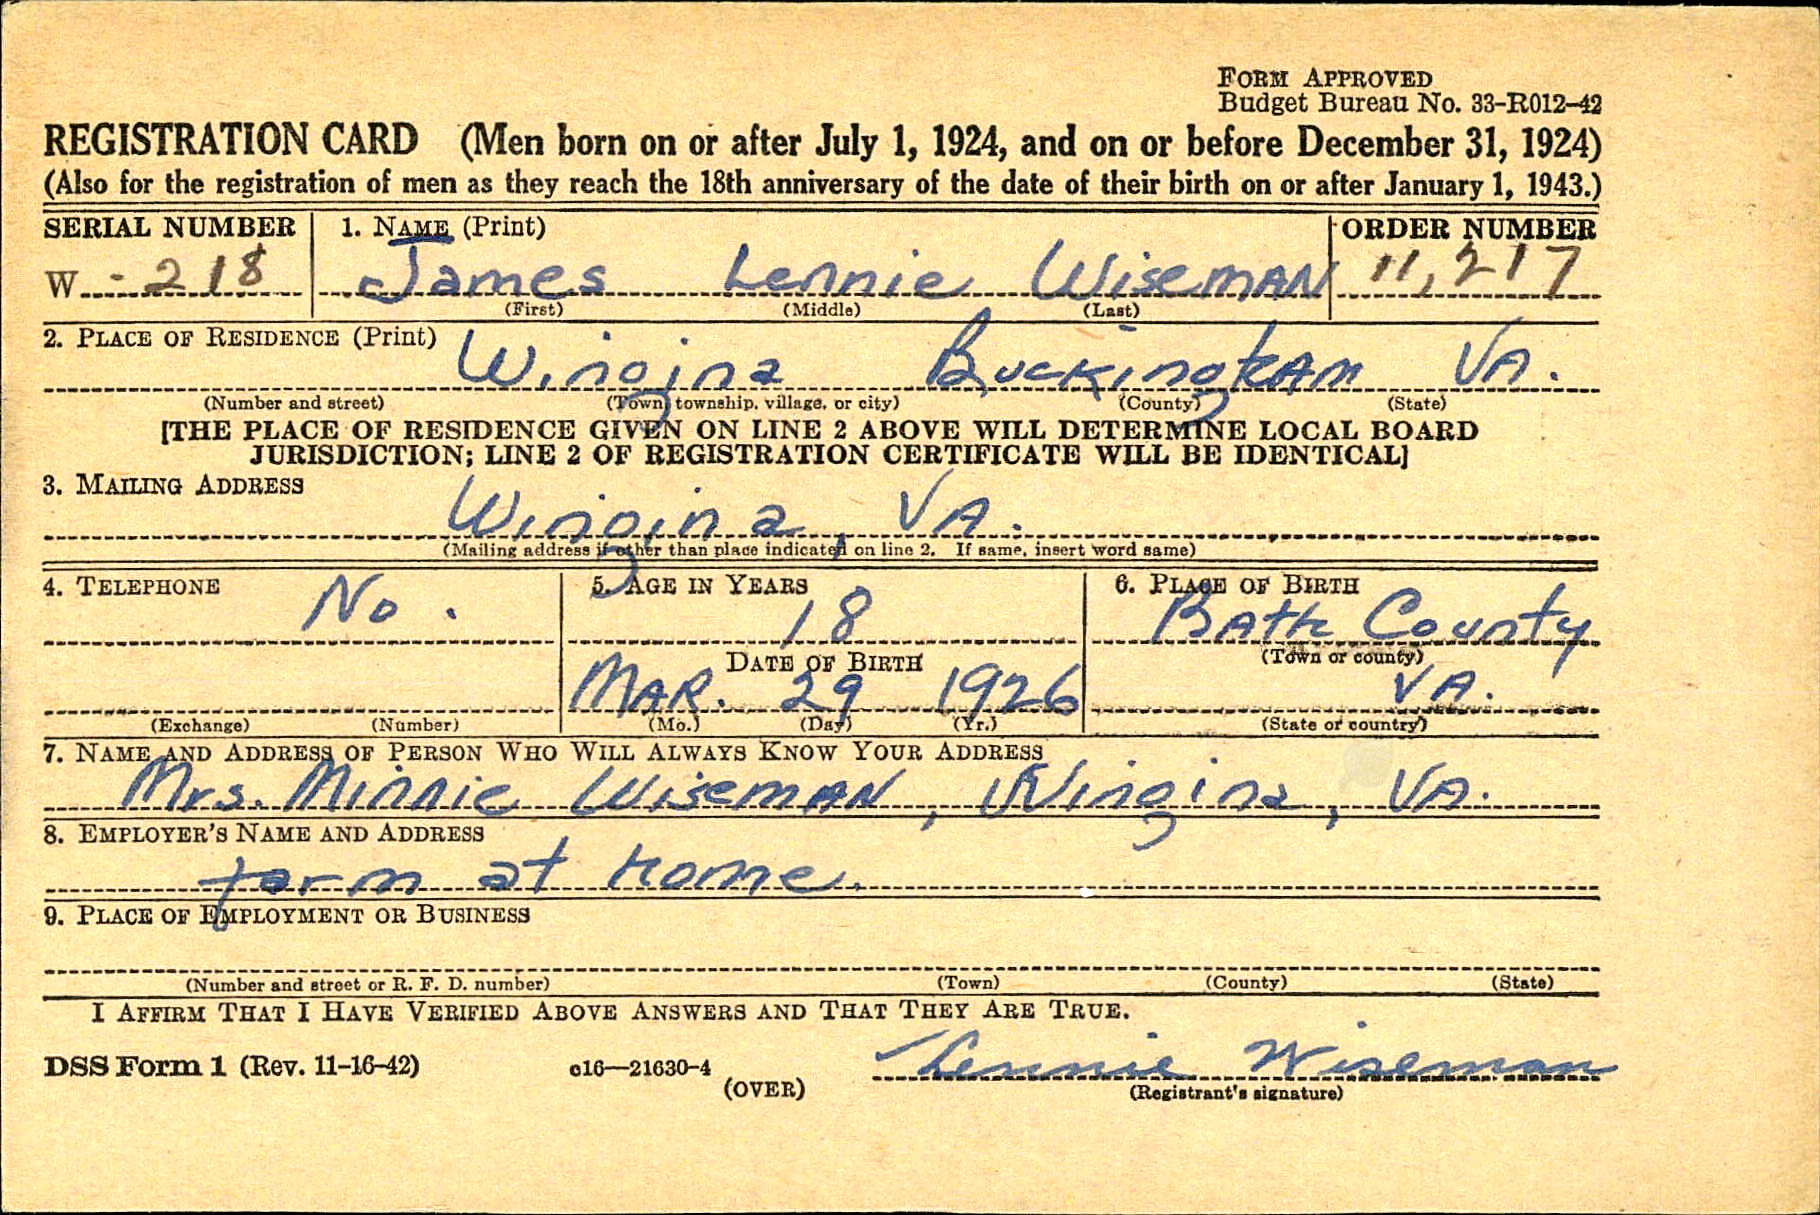 FORM APPROVED
Budget Bureau No. 33-R012-42
REGISTRATION CARD (Men born on or after July 1, 1924, and on or before December 31, 1924)
(Also for the registration of men as they reach the 18th anniversary of the date of their birth on or after January 1, 1943.)
SERIAL NUMBER 1. NAME (Print) ORDER NUMBER
W - 218 James Lennie Wiseman 11,217
(First) (Middle) (Last)
2. PLACE OF RESIDENCE (Print)
Wingina Buckingham VA.
(Number and street) (Town, township, village, or city) (County) (State)
[THE PLACE OF RESIDENCE GIVEN ON LINE 2 ABOVE WILL DETERMINE LOCAL BOARD
JURISDICTION; LINE 2 OF REGISTRATION CERTIFICATE WILL BE IDENTICAL]
3. MAILING ADDRESS
Wingina, VA.
(Mailing address if other than place indicated on line 2. If same, insert word same)
4. TELEPHONE 5. AGE IN YEARS 6. PLACE OF BIRTH
No. 18 Bath County
DATE OF BIRTH (Town or county)
MAR. 29 1926 VA.
(Exchange) (Number) (Mo.) (Day) (Yr.) (State or country)
7. NAME AND ADDRESS OF PERSON WHO WILL ALWAYS KNOW YOUR ADDRESS
Mrs. Minnie Wiseman, Wingina, VA.
8. EMPLOYER'S NAME AND ADDRESS
farm at home.
9. PLACE OF EMPLOYMENT OR BUSINESS
(Number and street or R. F. D. number) (Town) (County) (State)
I AFFIRM THAT I HAVE VERIFIED ABOVE ANSWERS AND THAT THEY ARE TRUE.
DSS Form 1 (Rev. 11-16-42) c16—21630-4 Lennie Wiseman
(OVER) (Registrant's signature)